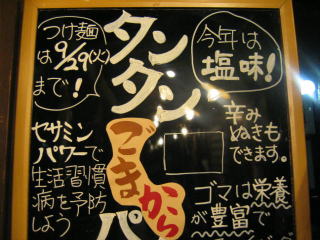 つけ麺
は9/29(火)
まで!
タンタン
ごまから
パ
今年は
塩味!
辛み
ぬきも
できます。
セサミン
パワーで
生活習慣
病を予防
しよう
ゴマは栄養
が豊富で